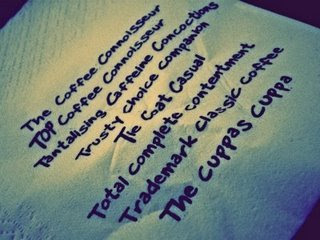 The Coffee Connoisseur
TOP Coffee Connoisseur
Tantalising Caffeine Concoctions
Trusty choice companion
The Cat Casual
Total complete contentment
Trademark Classic Coffee
The Cuppas Cuppa